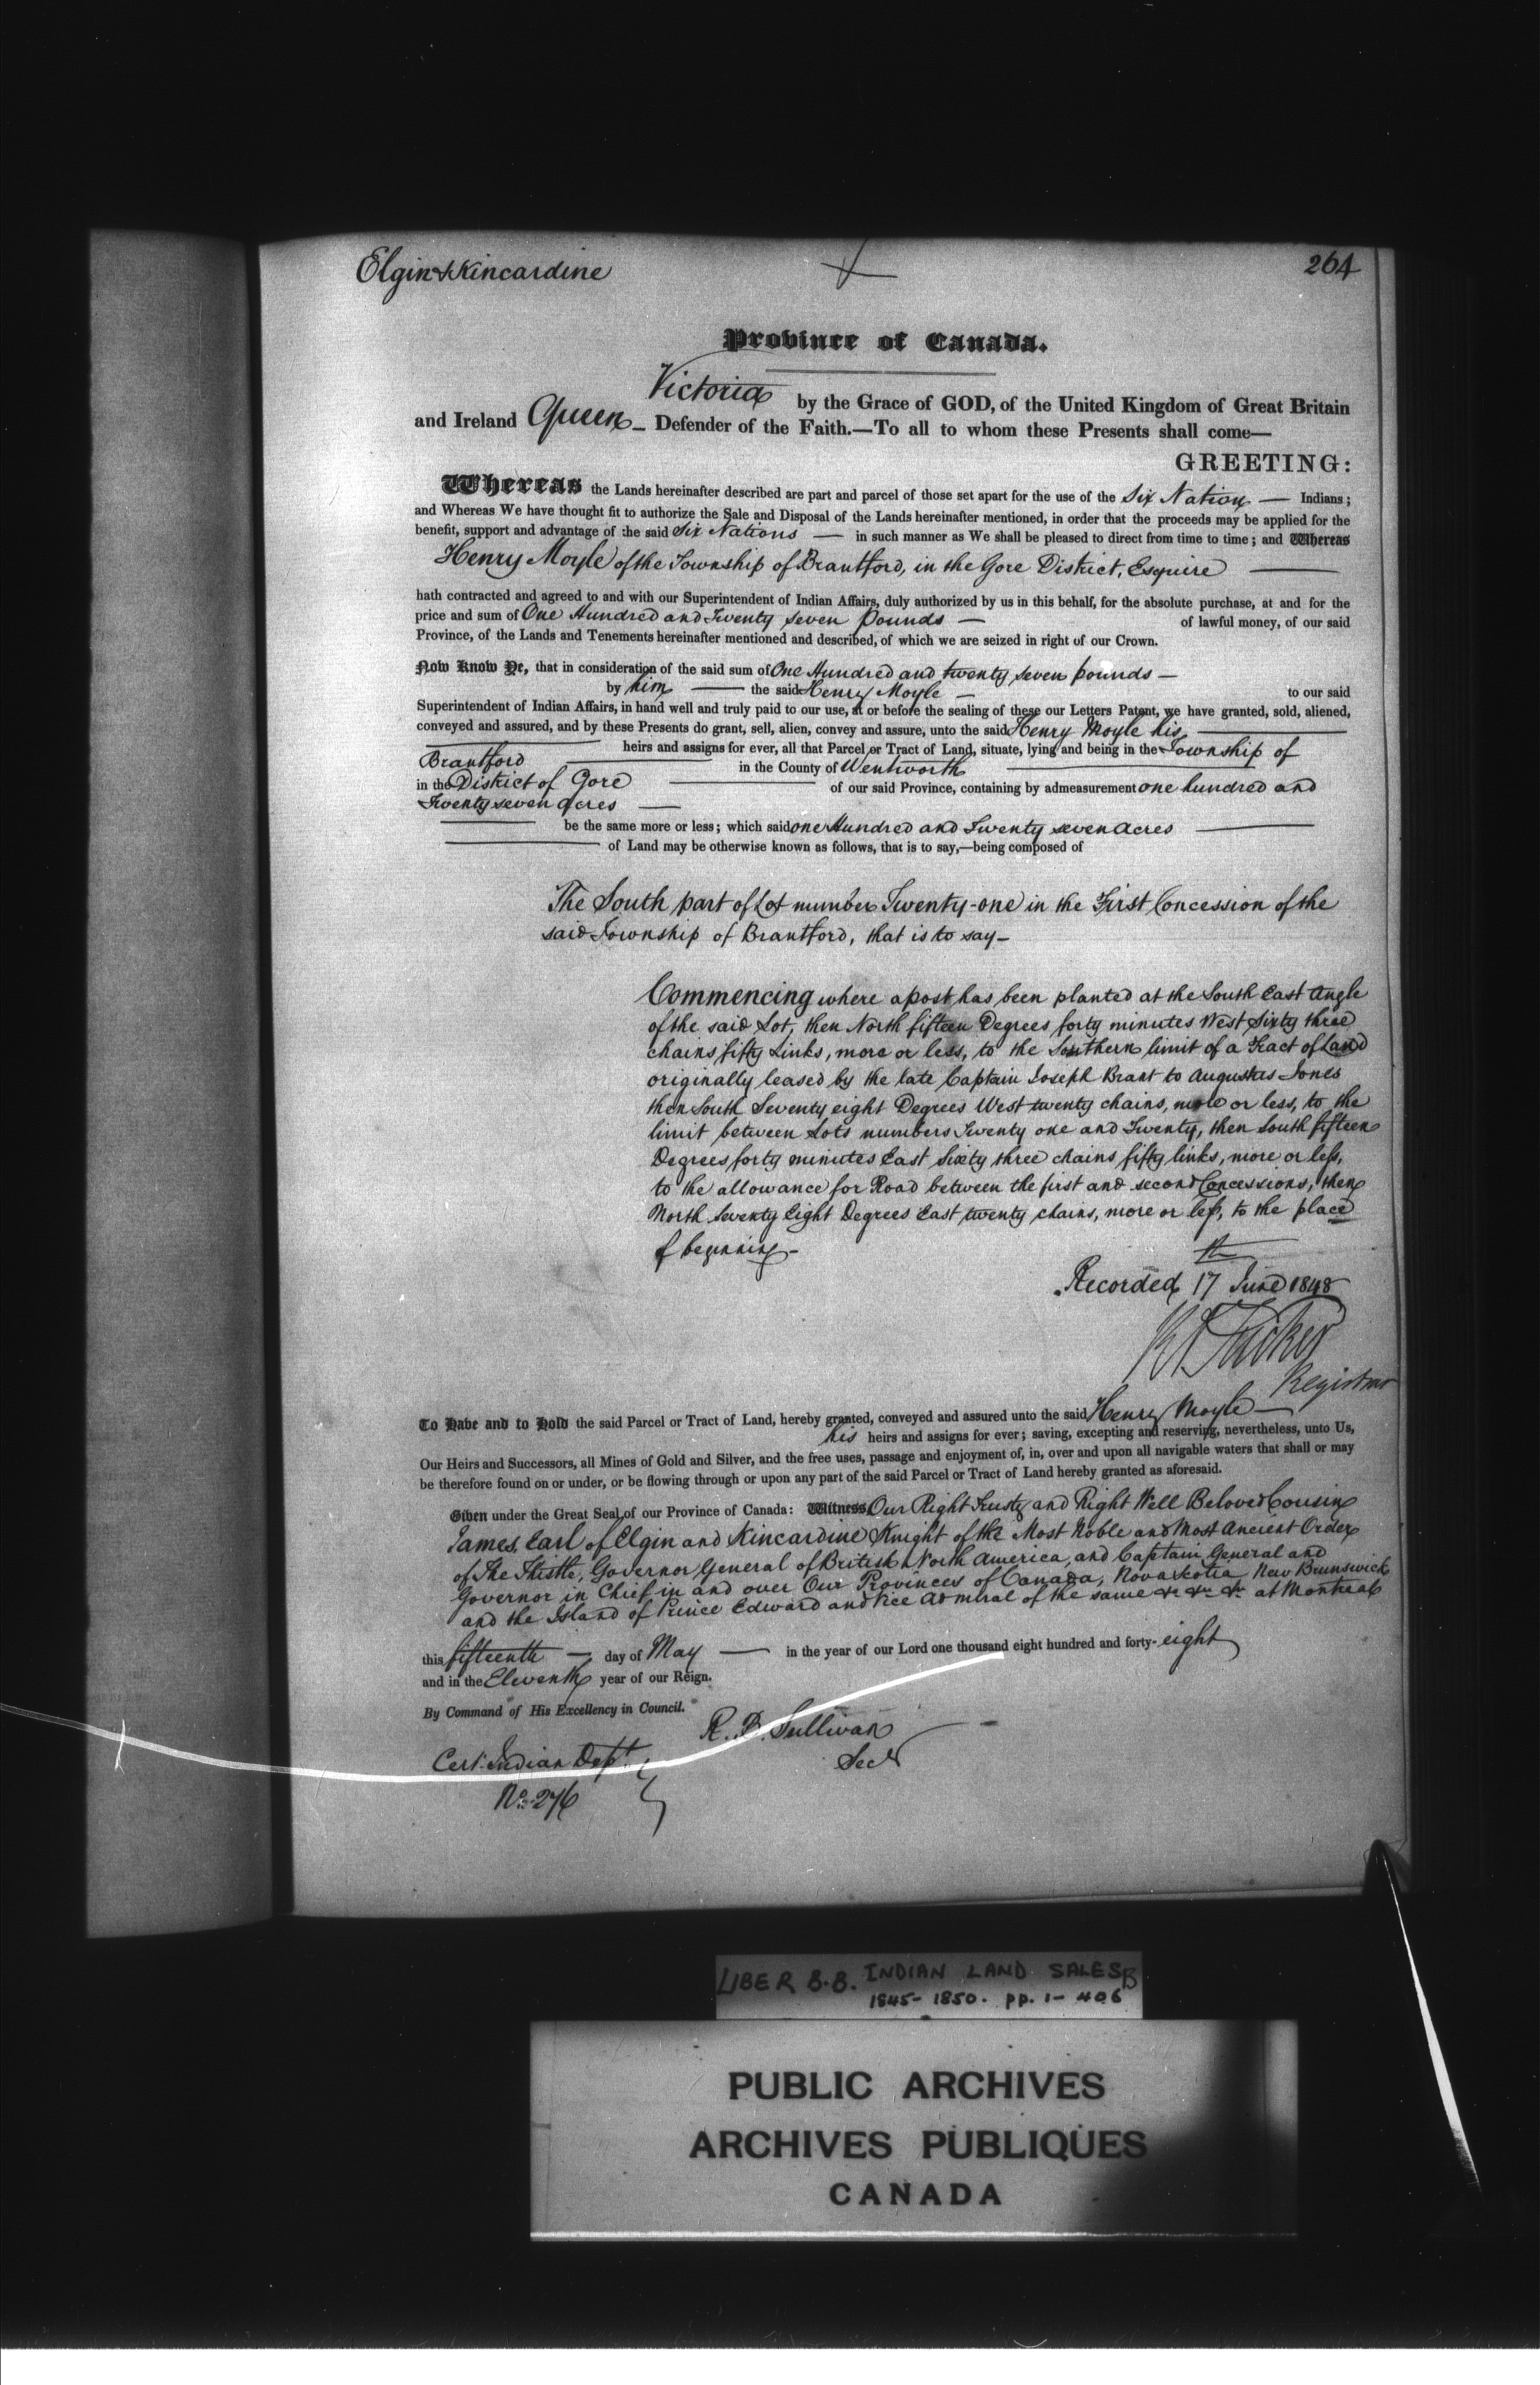 Elgin & Kincardine
264
Province of Canada.
Victoria by the Grace of GOD, of the United Kingdom of Great Britain
and Ireland Queen - Defender of the Faith.—To all to whom these Presents shall come—
GREETING:
Whereas the Lands hereinafter described are part and parcel of those set apart for the use of the Six Nations — Indians;
and Whereas We have thought fit to authorize the Sale and Disposal of the Lands hereinafter mentioned, in order that the proceeds may be applied for the
benefit, support and advantage of the said Six Nations — in such manner as We shall be pleased to direct from time to time; and Whereas
Henry Moyle of the Township of Brantford, in the Gore District, Esquire —
hath contracted and agreed to and with our Superintendent of Indian Affairs, duly authorized by us in this behalf, for the absolute purchase, at and for the
price and sum of One Hundred and Twenty seven pounds — of lawful money, of our said
Province, of the Lands and Tenements hereinafter mentioned and described, of which we are seized in right of our Crown.
Now Know Ye, that in consideration of the said sum of One Hundred and twenty seven pounds —
by him — the said Henry Moyle — to our said
Superintendent of Indian Affairs, in hand well and truly paid to our use, at or before the sealing of these our Letters Patent, we have granted, sold, aliened,
conveyed and assured, and by these Presents do grant, sell, alien, convey and assure, unto the said Henry Moyle his —
— heirs and assigns for ever, all that Parcel or Tract of Land, situate, lying and being in the Township of
Brantford — in the County of Wentworth —
in the District of Gore — of our said Province, containing by admeasurement one hundred and
Twenty seven acres —
— be the same more or less; which said one Hundred and Twenty seven acres —
— of Land may be otherwise known as follows, that is to say,—being composed of
The South part of Lot number Twenty-one in the First Concession of the
said Township of Brantford, that is to say -
Commencing where a post has been planted at the South East Angle
of the said Lot, then North fifteen Degrees forty minutes West Sixty three
chains fifty Links, more or less, to the Southern limit of a Tract of Land
originally leased by the late Captain Joseph Brant to Augustus Jones
then South Seventy eight Degrees West twenty chains, more or less, to the
limit between Lots numbers Twenty one and Twenty, then South fifteen
Degrees forty minutes East Sixty three chains fifty links, more or less,
to the allowance for Road between the first and second Concessions, then
North Seventy Eight Degrees East twenty chains, more or less, to the place
of beginning -
Recorded 17th June 1848
R A Tucker
Registrar
To Have and to Hold the said Parcel or Tract of Land, hereby granted, conveyed and assured unto the said Henry Moyle —
his heirs and assigns for ever; saving, excepting and reserving, nevertheless, unto Us,
Our Heirs and Successors, all Mines of Gold and Silver, and the free uses, passage and enjoyment of, in, over and upon all navigable waters that shall or may
be therefore found on or under, or be flowing through or upon any part of the said Parcel or Tract of Land hereby granted as aforesaid.
Given under the Great Seal of our Province of Canada: Witness, Our Right Trusty and Right Well Beloved Cousin
James, Earl of Elgin and Kincardine Knight of the Most Noble and Most Ancient Order
of The Thistle, Governor General of British North America, and Captain General and
Governor in Chief in and over Our Provinces of Canada, Nova Scotia, New Brunswick
and the Island of Prince Edward and Vice Admiral of the same &c &c &c at Montreal
this fifteenth — day of May — in the year of our Lord one thousand eight hundred and forty-eight
and in the Eleventh year of our Reign.
By Command of His Excellency in Council.
R. B. Sullivan
Secy
Cert. Indian Dept
No. 276
LIBER B.B. INDIAN LAND SALES B
1845-1850. pp. 1-406
PUBLIC ARCHIVES
ARCHIVES PUBLIQUES
CANADA